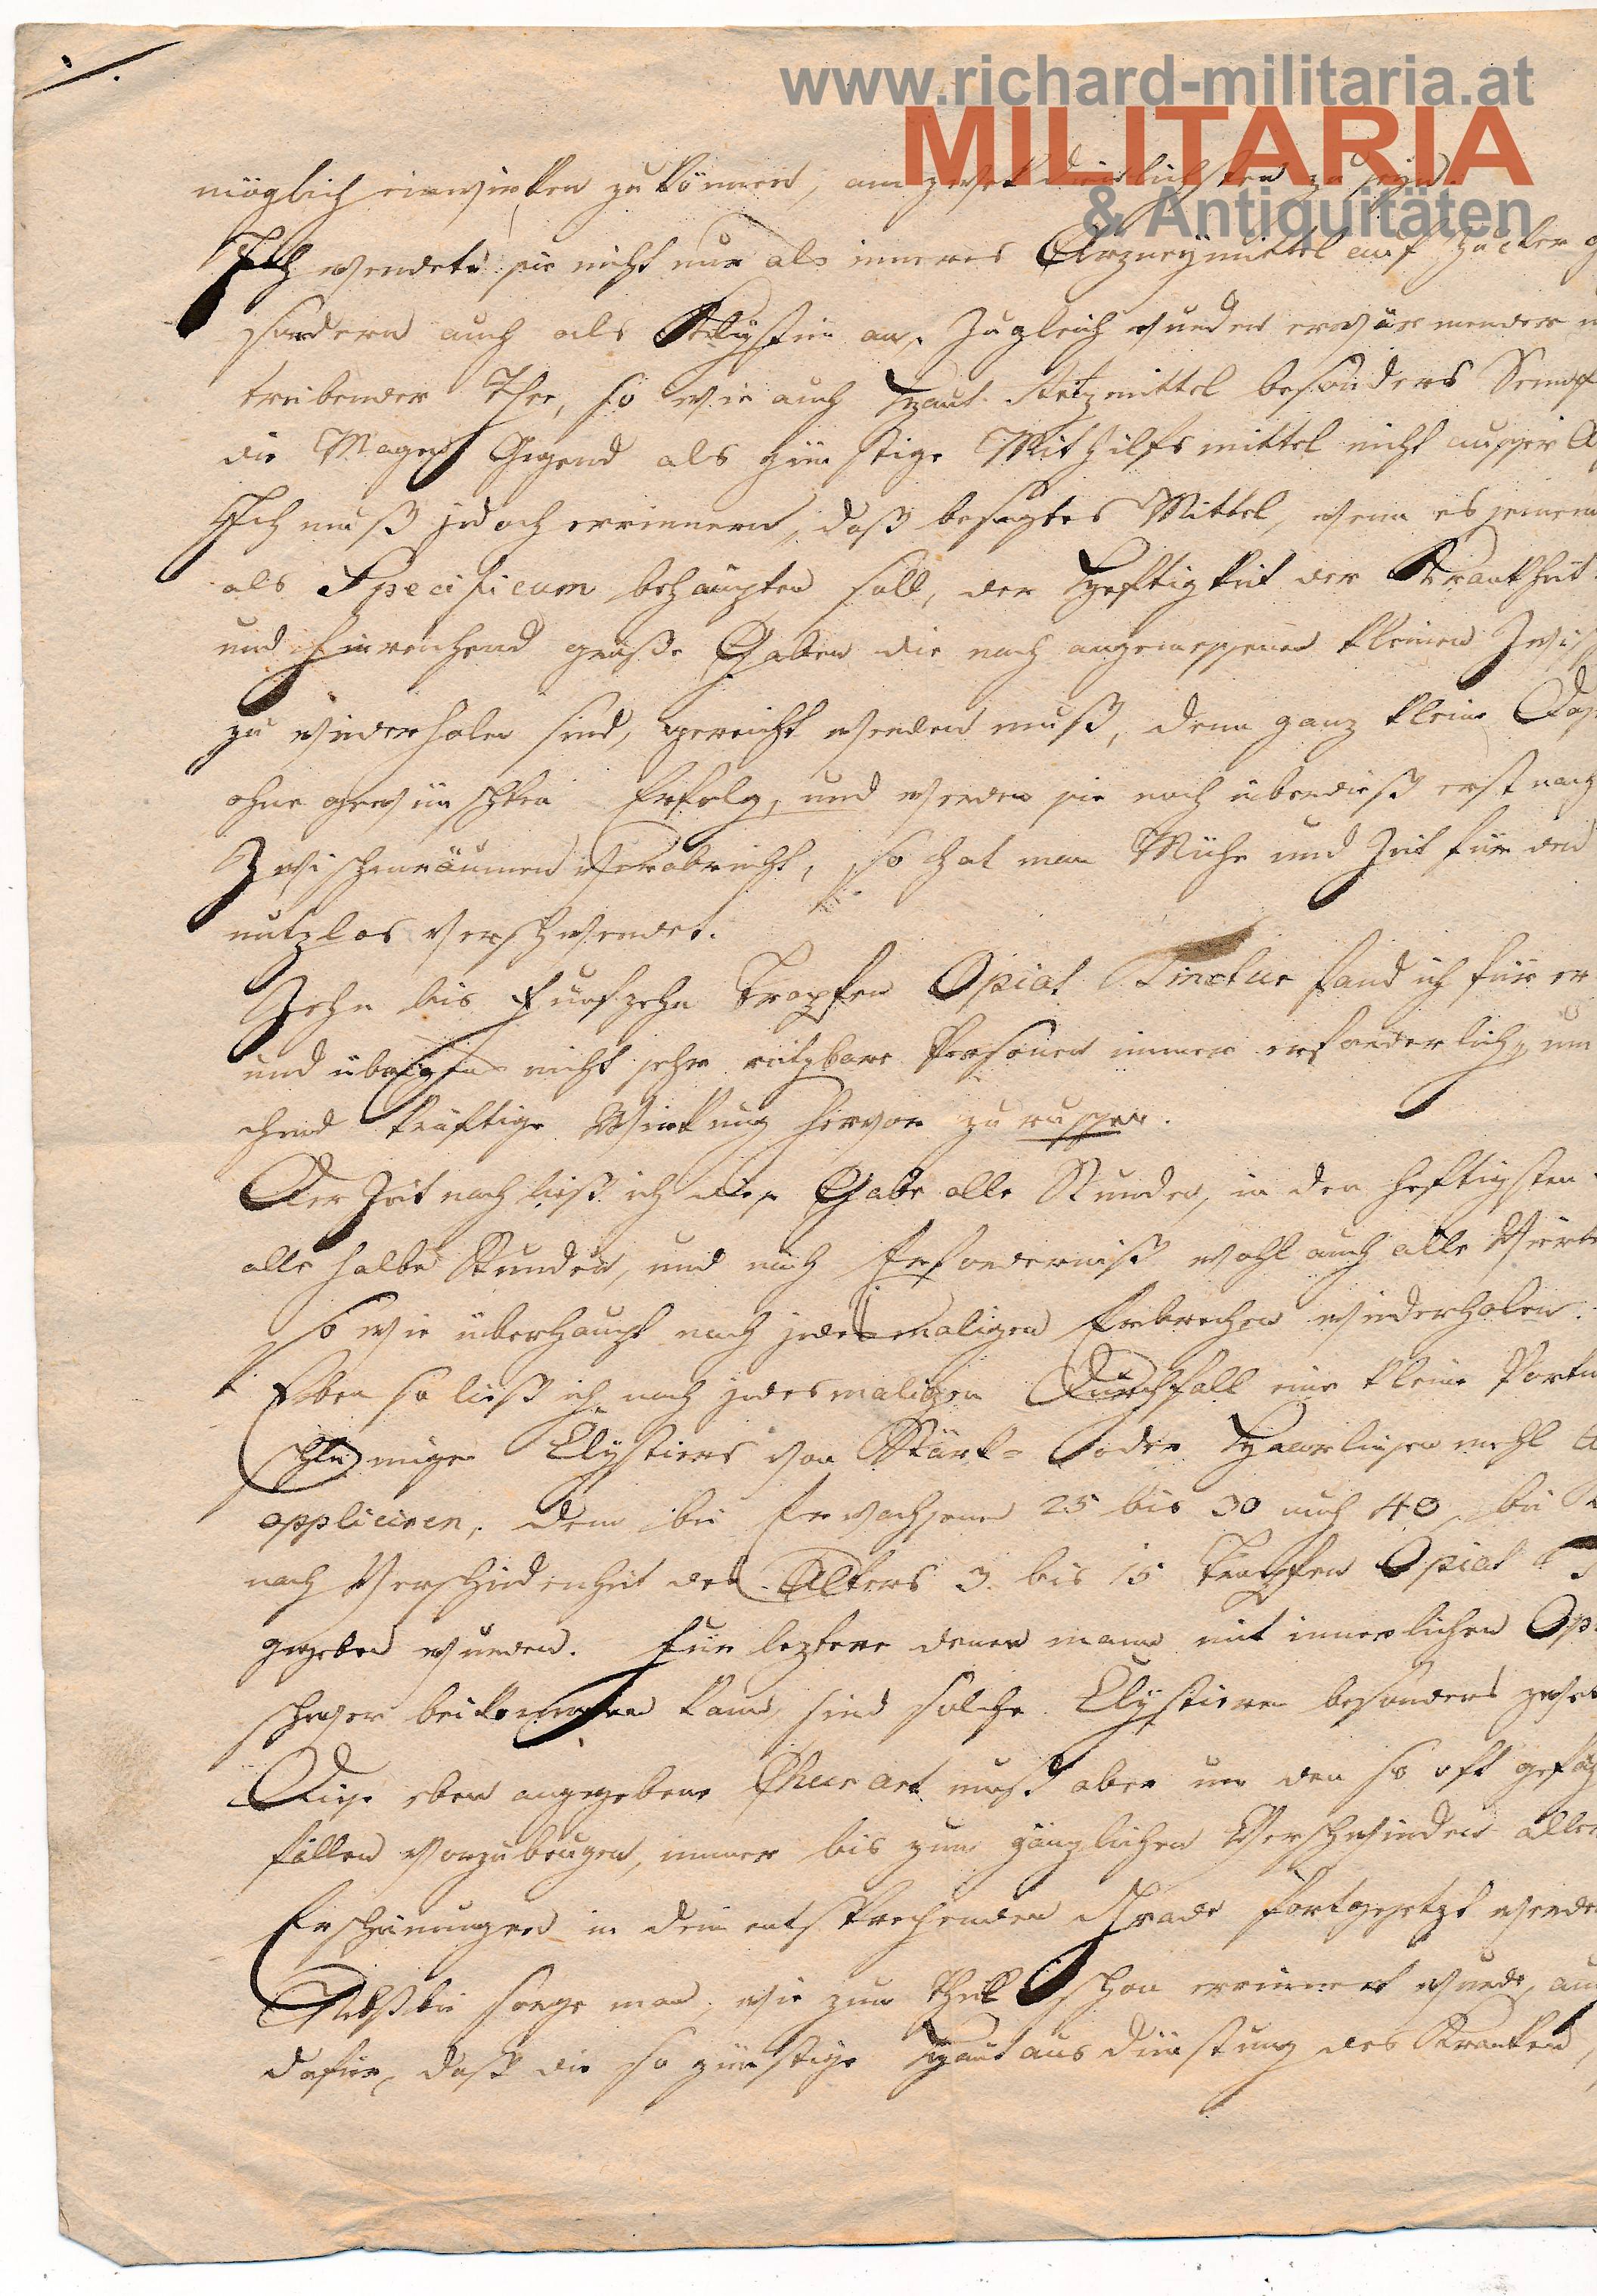 www.richard-militaria.at
MILITARIA
& Antiquitäten
möglich einwirken zu können, am zweckdienlichsten zu seyn.
Ich wendete sie nicht nur als inneres Arzneymittel auf Zucker
sondern auch als Klystier an. Zugleich wurden erwärmender
treibender Thee, so wie auch Haut Reitzmittel besonders Senf
die Magen Gegend als günstige Mithilfsmittel nicht ausser
Ich muß jedoch errinnern, daß besagtes Mittel, wenn es seinen
als Specificum behaupten soll, der Heftigkeit der Krankheit
und hinreichend große Gaben die nach angemessenen kleinen
zu wiederholen sind, gereicht werden muß, denn ganz kleine
ohne gewünschten Erfolg, und werden sie noch überdieß erst nach
Zwischenräumen verabreicht, so hat man Mühe und Zeit für den
nutzlos verschwendet.
Zehn bis fünfzehn Tropfen Opiat Tinctur fand ich für er
und übrigens nicht sehr reitzbare Personen immer erforderlich, um
chend kräftige Wirkung hervor zu ruffen.
Der Zeit nach ließ ich diese Gabe alle Stunden, in den heftigsten
alle halbe Stunden, und nach Erforderniß wohl auch alle Viertel
so wie überhaupt nach jedesmaligen Erbrechen wiederholen.
Eben so ließ ich nach jedesmaligen Durchfall eine kleine Portion
schleimiger Clystiere von Stärk= oder Haarlinsen mehl
appliciren, dem bei Erwachsenen 25 bis 30 auch 40, bei
nach Verschiedenheit des Alters 3 bis 15 Tropfen Opiat T
gegeben wurden. Für leztere denen mann mit innerlichen Op
schwer beikommen kann, sind solche Clystiere besonders zwek
Diese eben angegebene Churart muß aber um den so oft gefäh
fällen vorzubeugen, immer bis zum gänzlichen Verschwinden aller
Erscheinungen in dem entsprechenden Grade fortgesetzt werden
Nebstbei sorge man, wie zum Theil schon errinnert wurde, auch
dafür, daß die so günstige Hautausdünstung des Kranken,